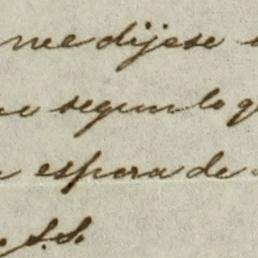 me dijese
segun lo q
espera de
S.S.